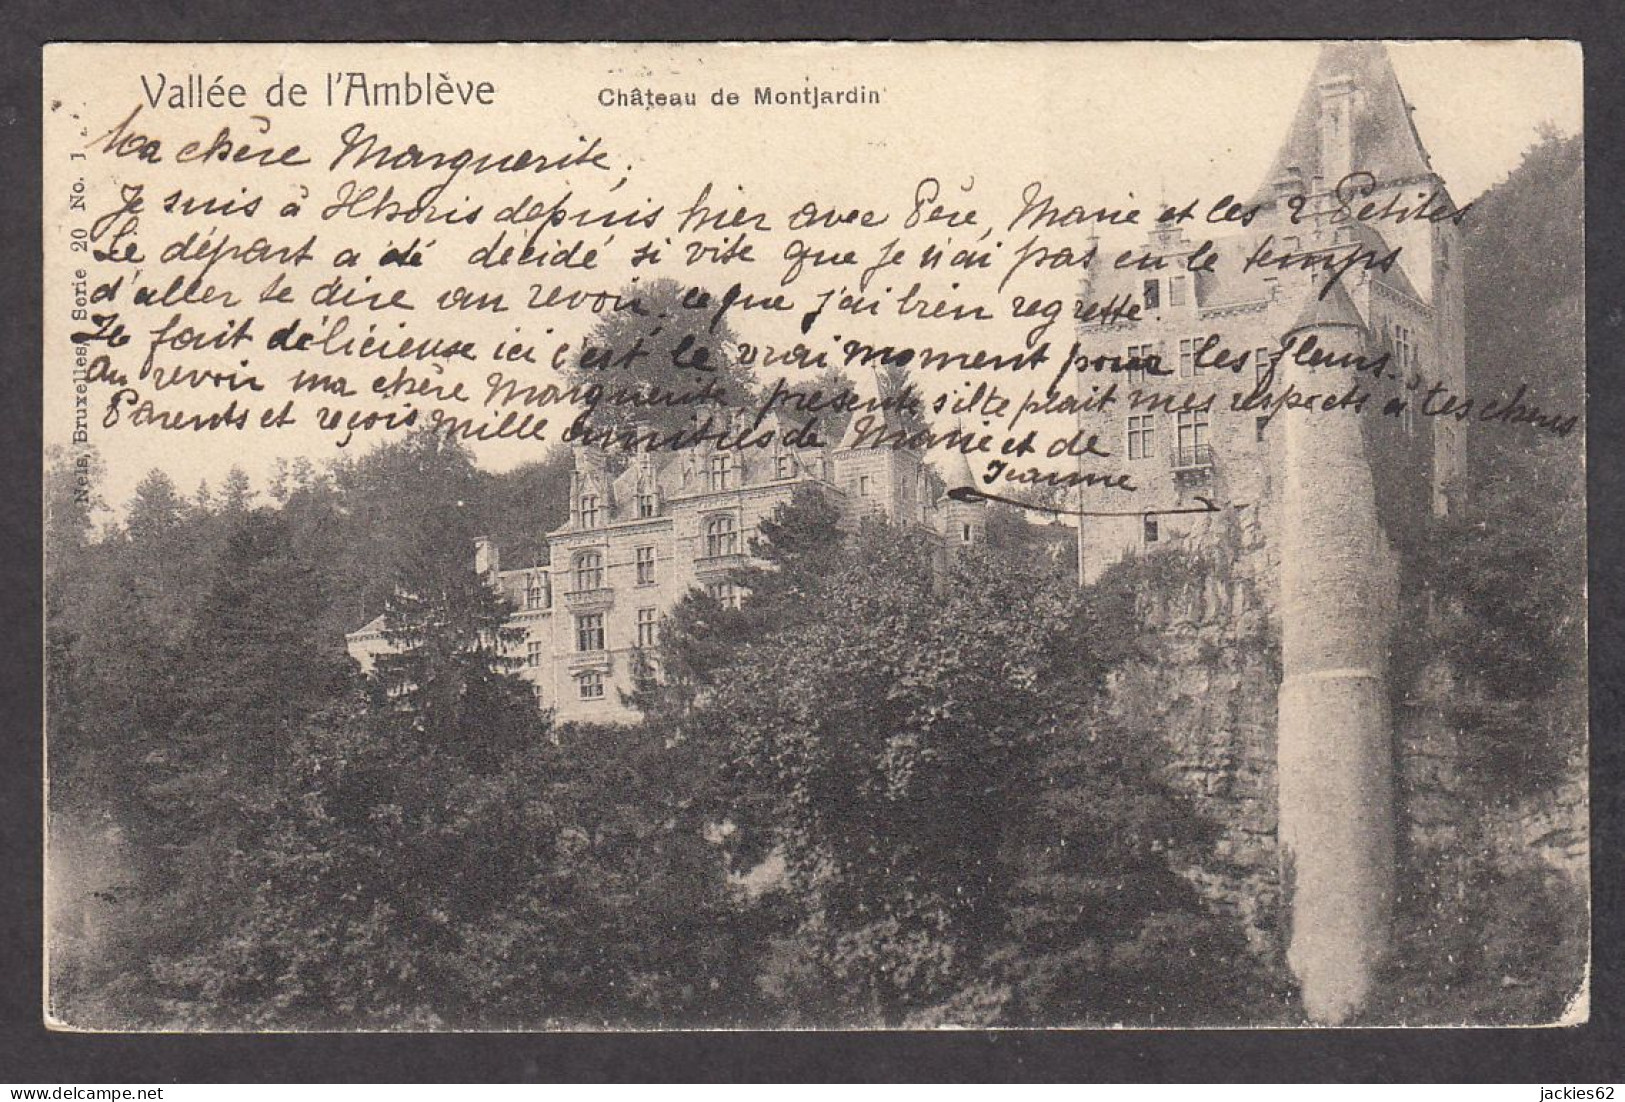 Vallée de l'Amblève
Château de Montjardin
Ma chère Marguerite,
Je suis à depuis hier avec Père, Marie et les 2 Petites
Le départ a été décidé si vite que je n'ai pas eu le temps
d'aller te dire au revoir, ce que j'ai bien regretté.
Il fait délicieux ici c'est le vrai moment pour les fleurs.
Au revoir ma chère Marguerite, présente s'il te plait mes respects à tes chers
Parents et reçois mille amitiés de Marie et de
Jeanne
Nels, Bruxelles, Serie 20 No. 1
jackies62